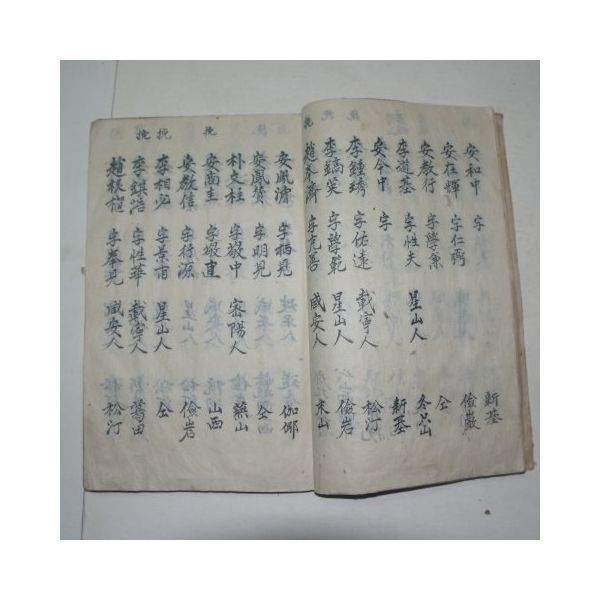 安和中 字 新基
安在輝 字仁弼 儉巖
安教行 字學兼 仝
李道基 字性夫 星山人 冬只山
安今中 字 新基
李鍾琇 字佑遠 載寧人 松汀
李鎬英 字學範 星山人 儉岩
挽 趙奉濟 字克善 咸安人 末山
安鳳濬 字栖見 伽倻
安鳳贊 字明見 仝
朴文柱 字敬中 密陽人 藥山
挽 安尚圭 字敬直 山西
安教值 字行源 儉岩
挽 李相少 字景甫 星山人 仝
挽 李鎮浩 字性華 載寧人 葛田
趙根樞 字奉見 咸安人 松汀